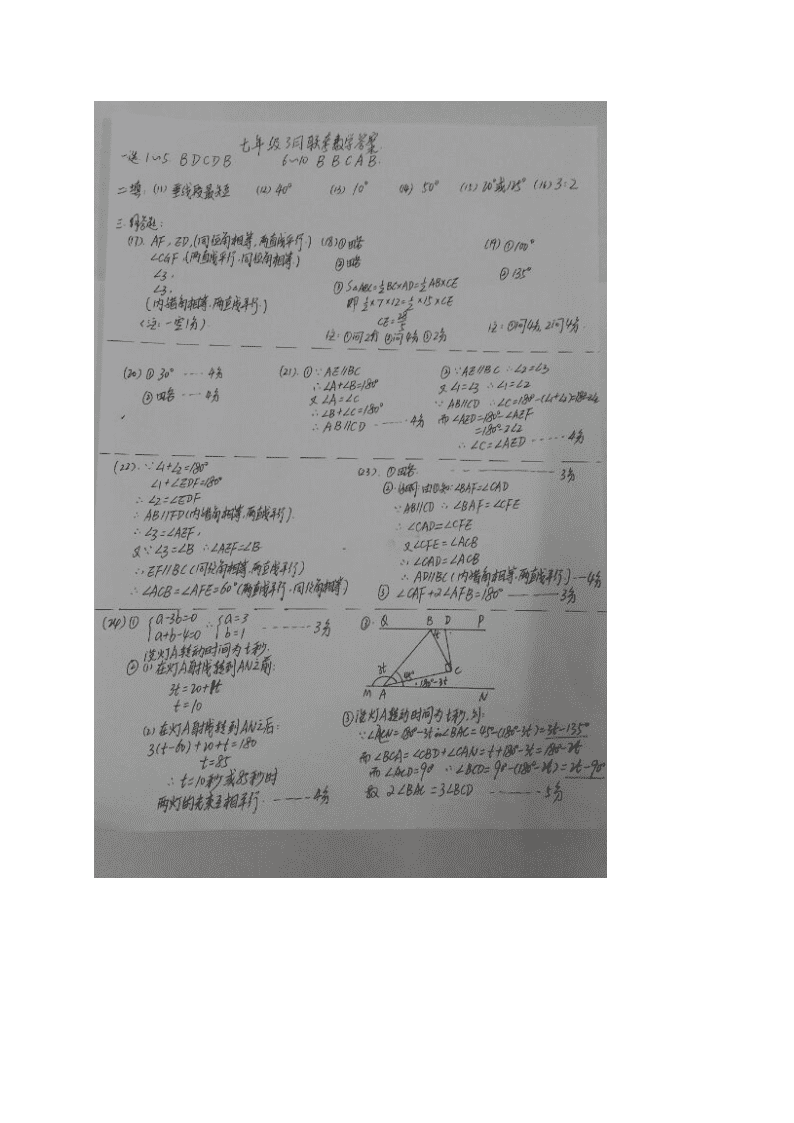 七年级3月联考数学答案.
一选 1~5. B D C D B 6~10 B B C A B.
二填: (11) 垂线段最短 (12) 40° (13) 10° (14) 50° (15) (16) 3:2
三.解答题:
(17). AF, ED, (同位角相等, 两直线平行.)
∠CGF (两直线平行, 同位角相等)
∠3,
∠3,
(内错角相等, 两直线平行.)
(注: 一空1分).
(18) ①略
②略
③ S△ABC=½BC×AD=½AB×CE
即 ½×7×12=½×15×CE
CE=28/5
注: ①问2分 ②问4分 ③2分
(19) ①100°
②135°
注: ①问4分, 2问4分.
(20) ① 30° ---- 4分
②略 ---- 4分
(21). ①∵AE∥BC
∴∠A+∠B=180°
又∠A=∠C
∴∠B+∠C=180°
∴AB∥CD ------ 4分
②∵AE∥BC ∴∠2=∠3
又∠1=∠3 ∴∠1=∠2
∵AB∥CD ∴∠C=180°-(∠1+∠2)=180°-2∠2
而∠AED=180°-∠AEF
=180°-2∠2
∴∠C=∠AED ------ 4分
(22). ∵∠1+∠2=180°
∠1+∠EDF=180°
∴∠2=∠EDF
∴AB∥FD (内错角相等, 两直线平行).
∴∠3=∠AEF,
又∵∠3=∠B ∴∠AEF=∠B
∴EF∥BC (同位角相等, 两直线平行)
∴∠ACB=∠AFE=60° (两直线平行, 同位角相等)
(23). ①略. ------ 3分
②说明: 由①知: ∠BAF=∠CAD
∵AB∥CD ∴∠BAF=∠CFE
∴∠CAD=∠CFE
又∠CFE=∠ACB
∴∠CAD=∠ACB
∴AD∥BC (内错角相等, 两直线平行) --- 4分
③ ∠CAF+2∠AFB=180° ------ 3分
(24) ① {a-3b=0 ∴{a=3
{a+b-4=0 {b=1 ------ 3分
设灯A转动时间为t秒.
② (1) 在灯A射线转到AN之前:
3t=20+t
t=10
(2) 在灯A射线转到AN之后:
3(t-60)+20+t=180
t=85
∴t=10秒或85秒时
两灯的光束互相平行. ------ 4分
③.
Q B D P
t
3t 45° C
180°-3t
M A N
③设灯A转动时间为t秒, 则:
∵∠CAN=180°-3t ∴∠BAC=45°-(180°-3t)=3t-135°
而∠BCA=∠CBD+∠CAN=t+180°-3t=180°-2t
而∠ACD=90° ∴∠BCD=90°-(180°-2t)=2t-90°
故 2∠BAC=3∠BCD ------ 5分